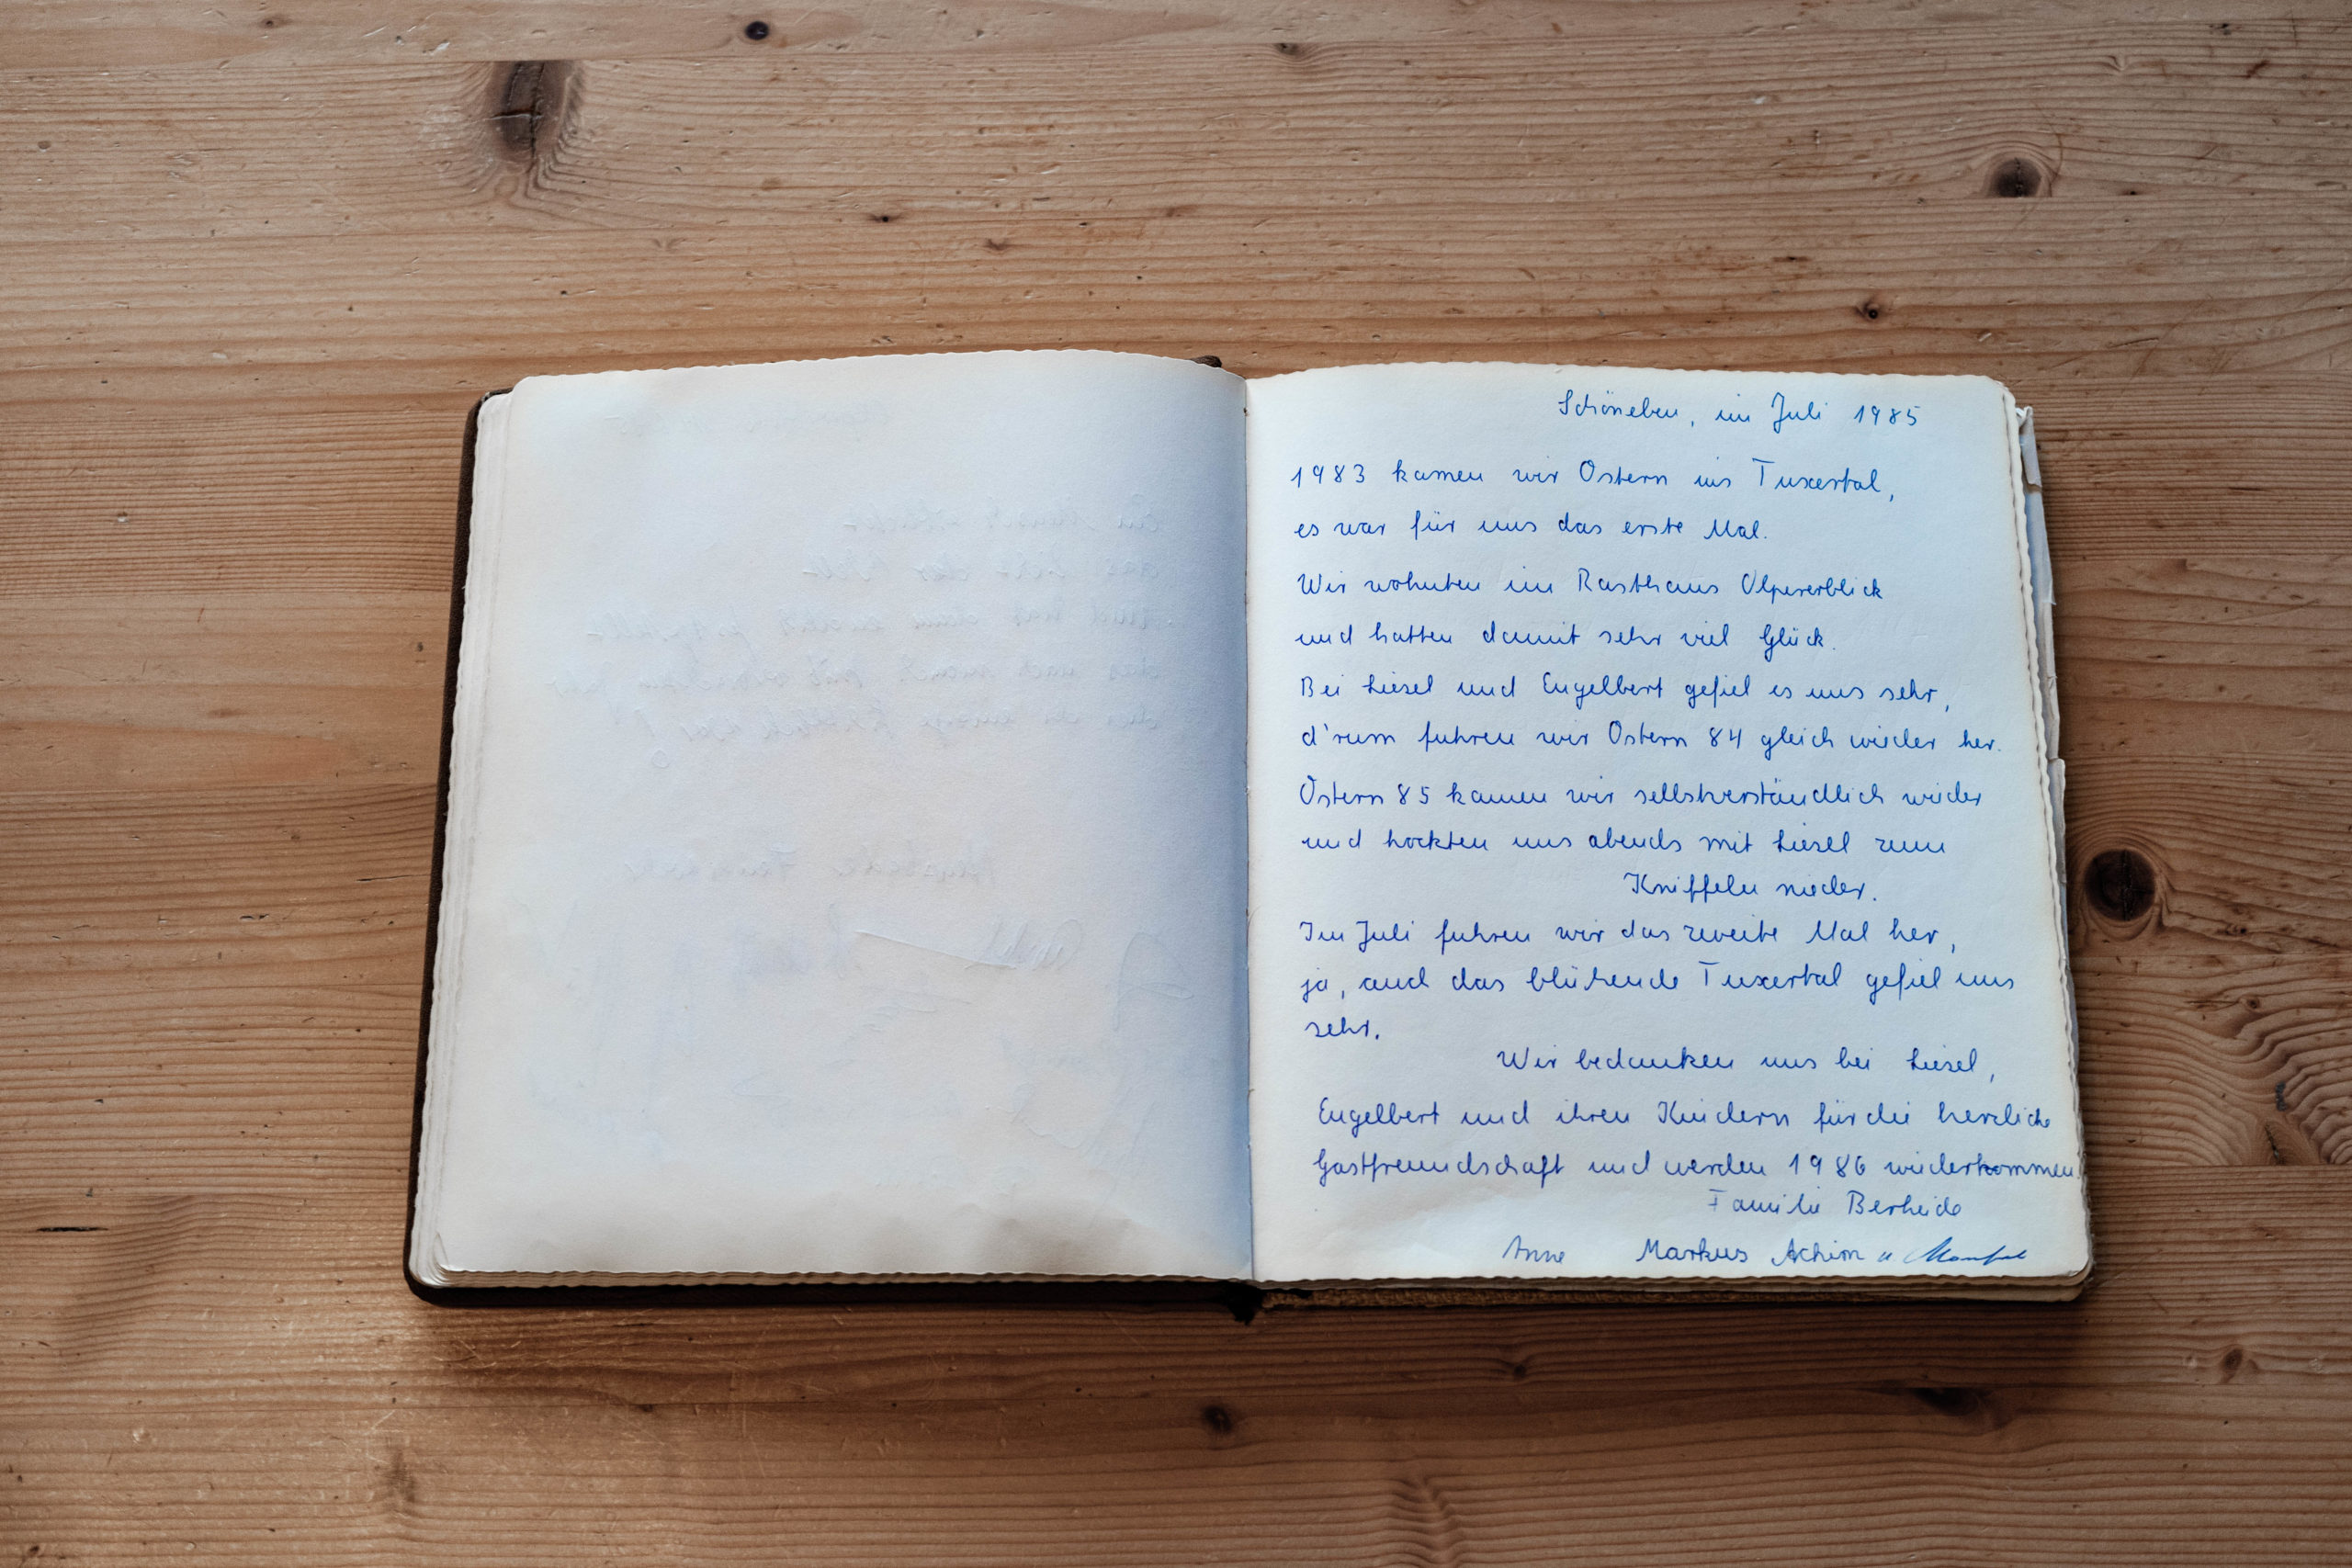 Schöneben, im Juli 1985
1983 kamen wir Ostern ins Tuxertal,
es war für uns das erste Mal.
Wir wohnten im Rasthaus Olpererblick
und hatten damit sehr viel Glück.
Bei Liesel und Engelbert gefiel es uns sehr,
d'rum fuhren wir Ostern 84 gleich wieder her.
Ostern 85 kamen wir selbstverständlich wieder
und hockten uns abends mit Liesel zum
Kniffeln nieder.
Im Juli fuhren wir das zweite Mal her,
ja, auch das blühende Tuxertal gefiel uns
sehr.
Wir bedanken uns bei Liesel,
Engelbert und ihren Kindern für die herzliche
Gastfreundschaft und werden 1986 wiederkommen.
Familie Berheide
Anne Markus Achim u